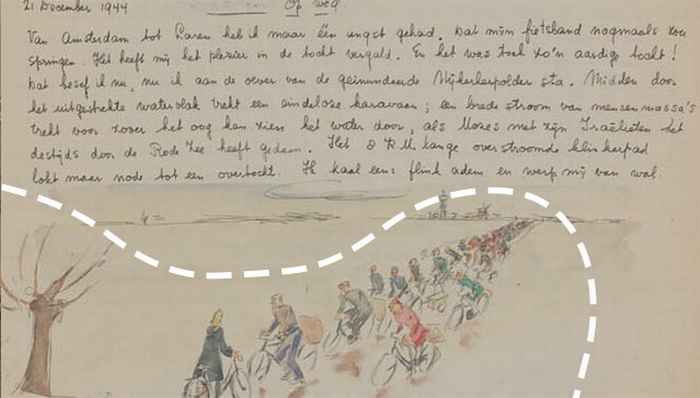 21 December 1944 Op weg
Van Amsterdam tot Laren heb ik maar één angst gehad. Dat mijn fietsband nogmaals zou
springen. Het heeft mij het plezier in de tocht vergald. En het was toch zo'n aardige tocht!
Dat besef ik nu, nu ik aan de oever van de geïnundeerde Nijkerkerpolder sta. Midden door
het uitgestrekte watervlak trekt een eindeloze karavaan; een brede stroom van mensenmassa's
trekt voor zover het oog kan zien het water door, als Mozes met zijn Israëlieten het
destijds door de Rode Zee heeft gedaan. Het 8 K.M. lange overstroomde klinkerpad
lokt maar node tot een overtocht. Ik haal eens flink adem en werp mij van wal.